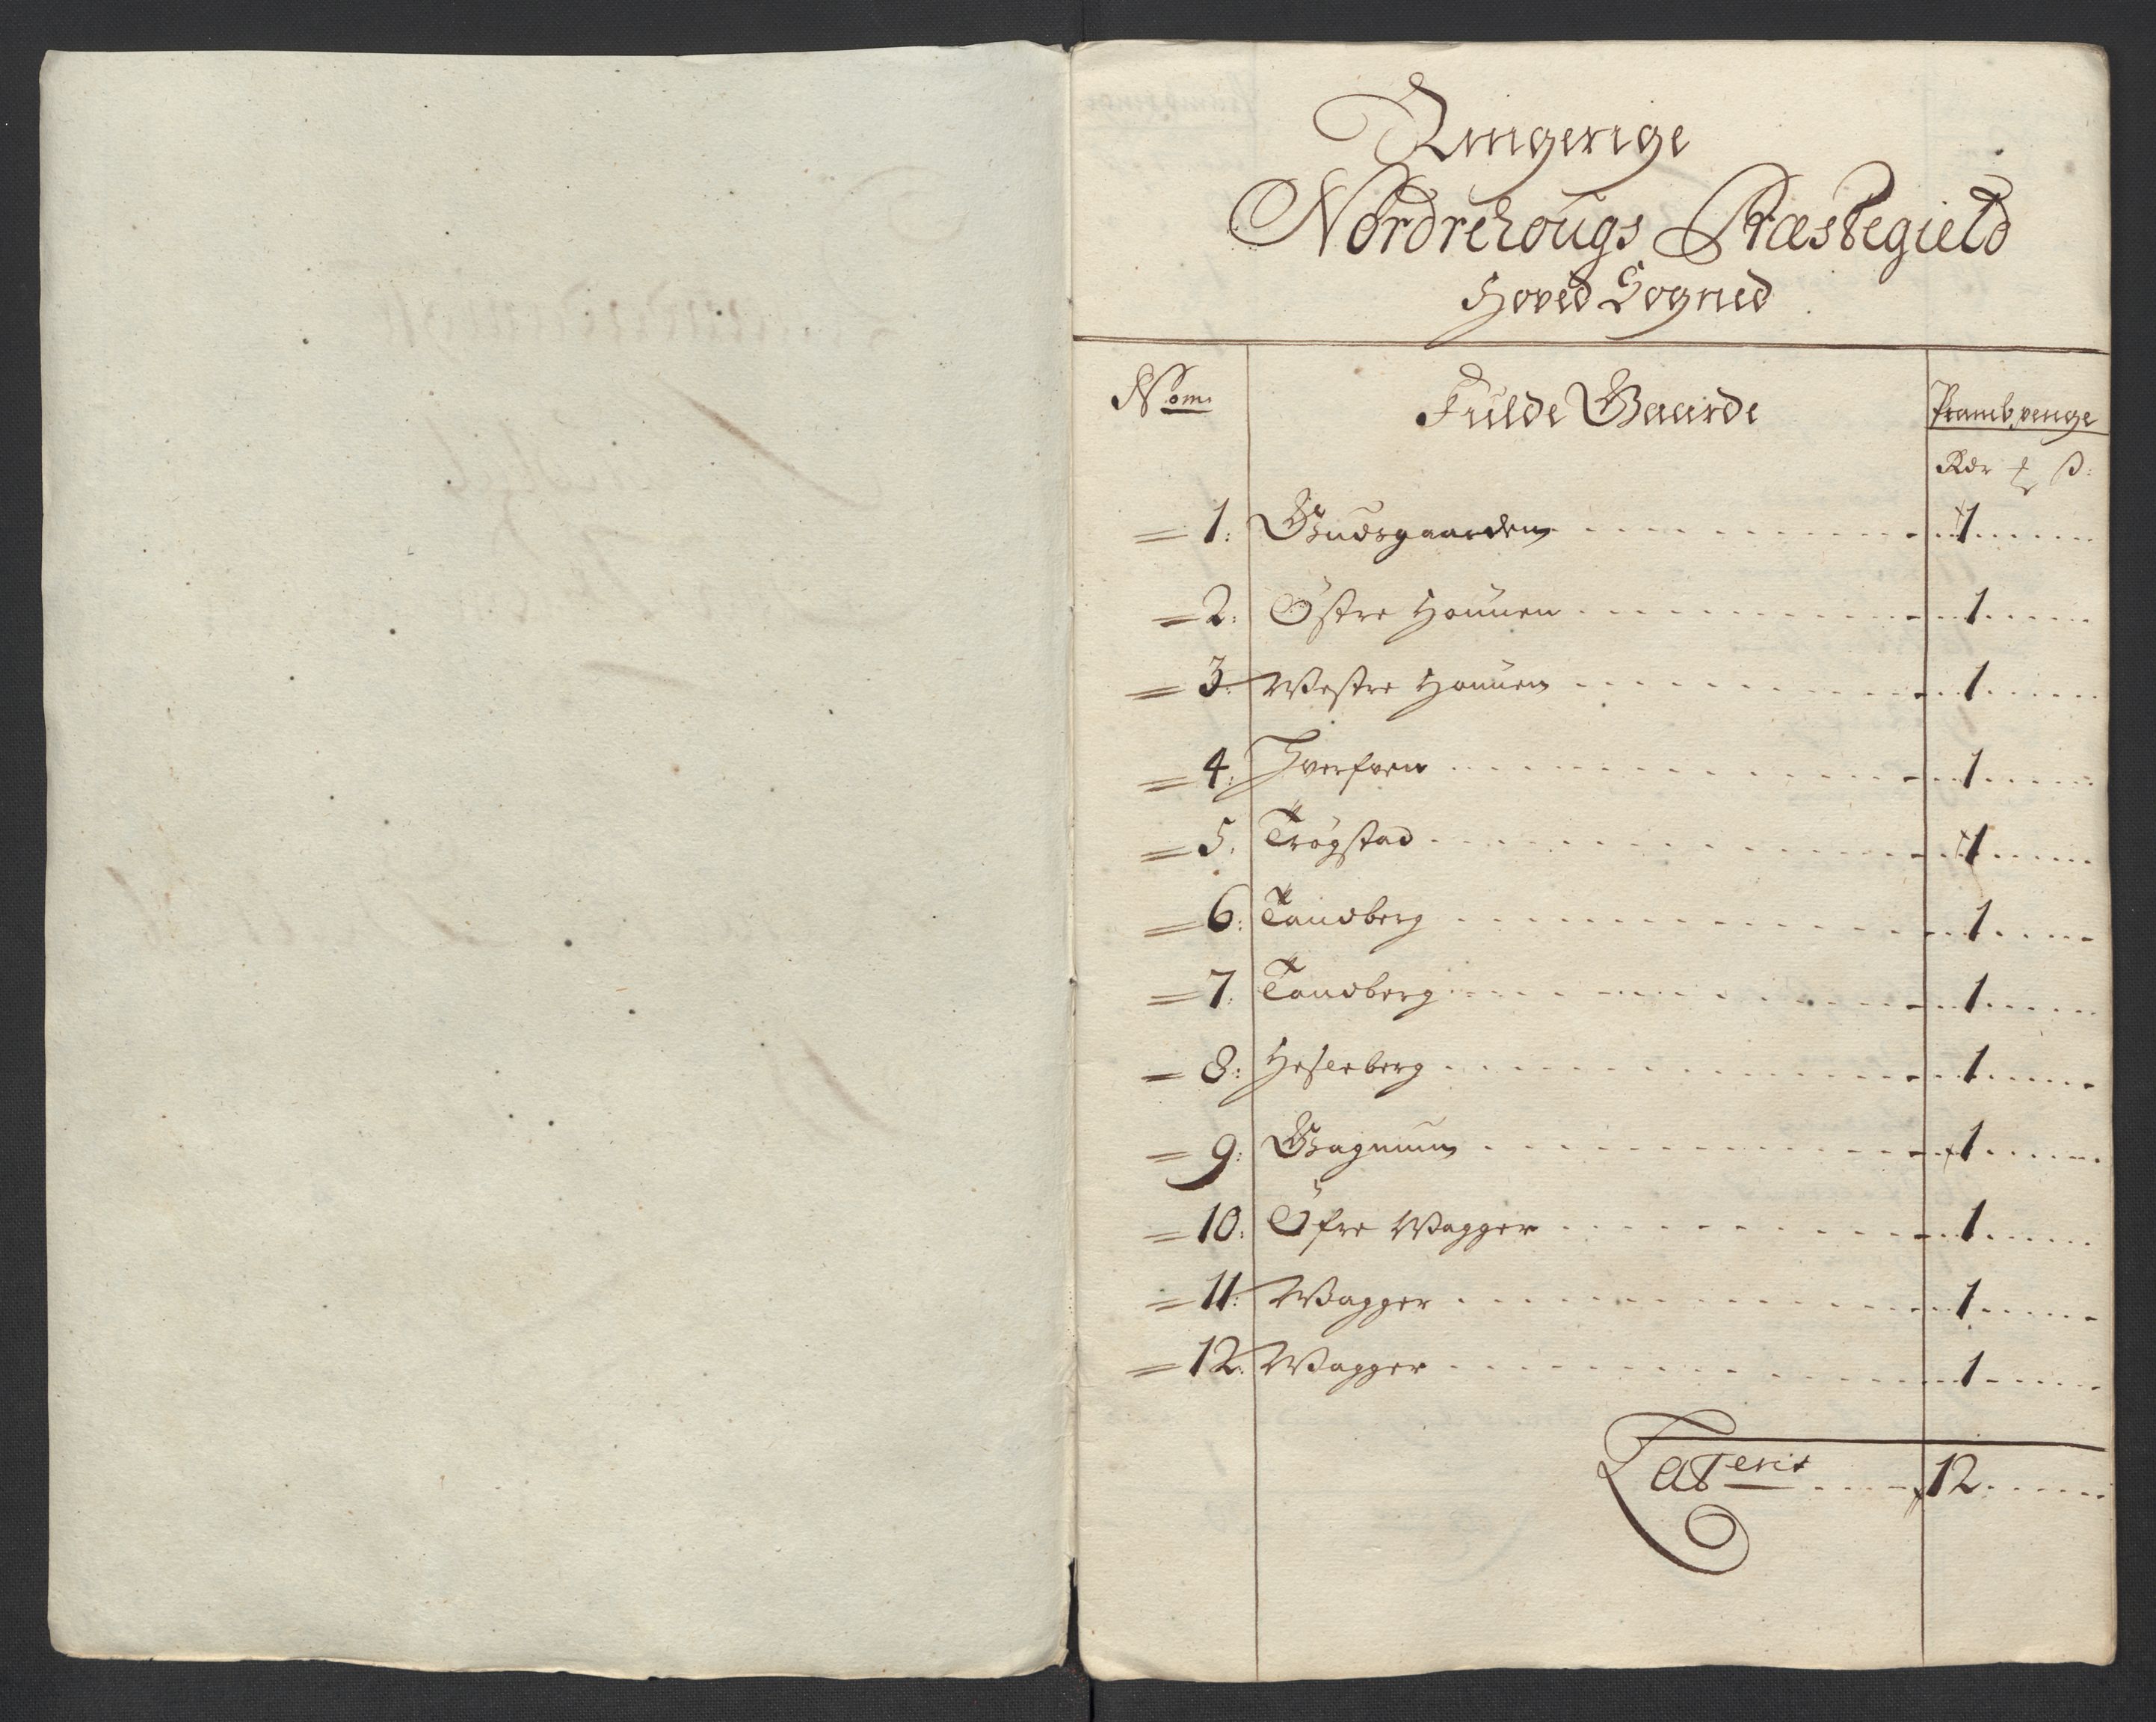 Ringerige
Nordrehougs Præstegield
Hoved Sogned
Nom. Fulde Gaarde Prambpenge
Rdr ß:
1: Gudsgaarden 1
2: Östre Hounen 1
3: Westre Hounen 1
4: Hverfven 1
5. Trögstad 1
6: Tandberg 1
7. Tandberg 1
8: Heseberg 1
9: Gagnum 1
10: Öfre Wagger 1
11: Wagger 1
12: Wagger 1
Laterit 12